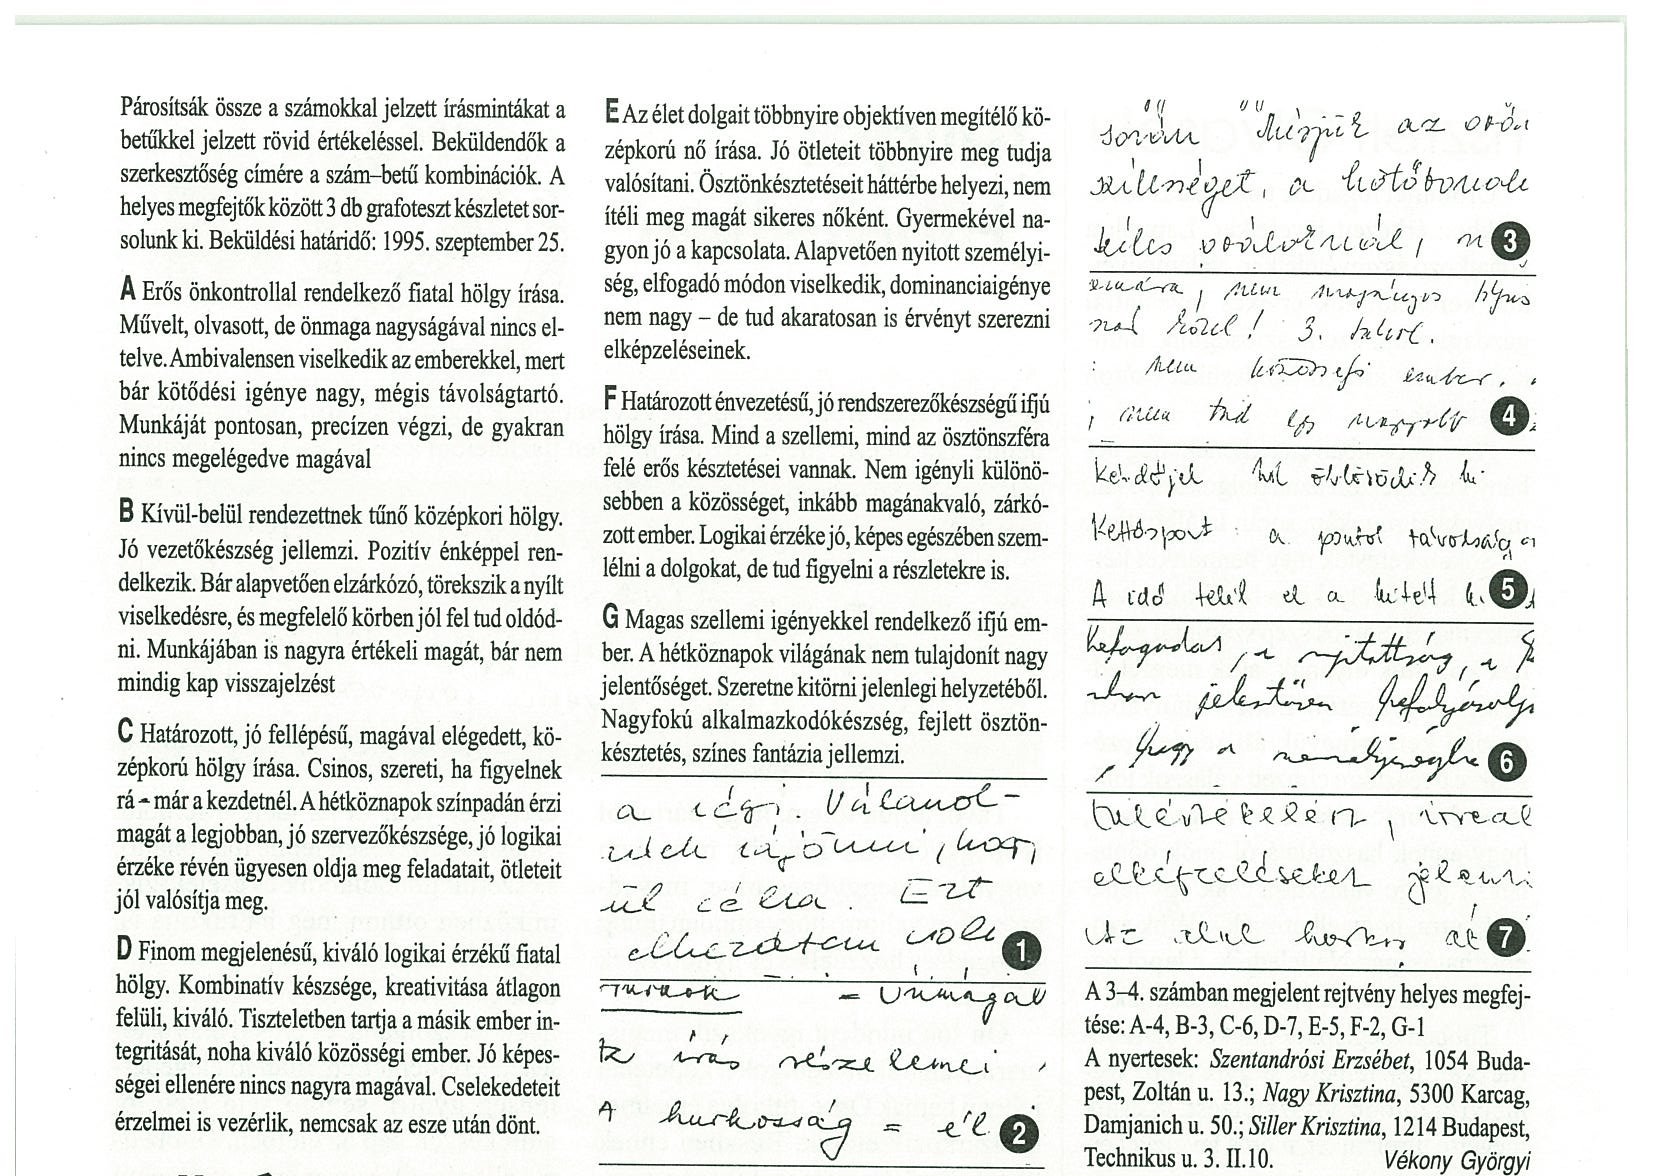 Párosítsák össze a számokkal jelzett írásmintákat a
betűkkel jelzett rövid értékeléssel. Beküldendők a
szerkesztőség címére a szám–betű kombinációk. A
helyes megfejtők között 3 db grafoteszt készletet sor-
solunk ki. Beküldési határidő: 1995. szeptember 25.
A Erős önkontrollal rendelkező fiatal hölgy írása.
Művelt, olvasott, de önmaga nagyságával nincs el-
telve. Ambivalensen viselkedik az emberekkel, mert
bár kötődési igénye nagy, mégis távolságtartó.
Munkáját pontosan, precízen végzi, de gyakran
nincs megelégedve magával
B Kívül-belül rendezettnek tűnő középkori hölgy.
Jó vezetőkészség jellemzi. Pozitív énképpel ren-
delkezik. Bár alapvetően elzárkózó, törekszik a nyílt
viselkedésre, és megfelelő körben jól fel tud oldód-
ni. Munkájában is nagyra értékeli magát, bár nem
mindig kap visszajelzést
C Határozott, jó fellépésű, magával elégedett, kö-
zépkorú hölgy írása. Csinos, szereti, ha figyelnek
rá – már a kezdetnél. A hétköznapok színpadán érzi
magát a legjobban, jó szervezőkészsége, jó logikai
érzéke révén ügyesen oldja meg feladatait, ötleteit
jól valósítja meg.
D Finom megjelenésű, kiváló logikai érzékű fiatal
hölgy. Kombinatív készsége, kreativitása átlagon
felüli, kiváló. Tiszteletben tartja a másik ember in-
tegritását, noha kiváló közösségi ember. Jó képes-
ségei ellenére nincs nagyra magával. Cselekedeteit
érzelmei is vezérlik, nemcsak az esze után dönt.
E Az élet dolgait többnyire objektíven megítélő kö-
zépkorú nő írása. Jó ötleteit többnyire meg tudja
valósítani. Ösztönkésztetéseit háttérbe helyezi, nem
ítéli meg magát sikeres nőként. Gyermekével na-
gyon jó a kapcsolata. Alapvetően nyitott személyi-
ség, elfogadó módon viselkedik, dominanciaigénye
nem nagy – de tud akaratosan is érvényt szerezni
elképzeléseinek.
F Határozott énvezetésű, jó rendszerezőkészségű ifjú
hölgy írása. Mind a szellemi, mind az ösztönszféra
felé erős késztetései vannak. Nem igényli különö-
sebben a közösséget, inkább magánakvaló, zárkó-
zott ember. Logikai érzéke jó, képes egészében szem-
lélni a dolgokat, de tud figyelni a részletekre is.
G Magas szellemi igényekkel rendelkező ifjú em-
ber. A hétköznapok világának nem tulajdonít nagy
jelentőséget. Szeretne kitörni jelenlegi helyzetéből.
Nagyfokú alkalmazkodókészség, fejlett ösztön-
késztetés, színes fantázia jellemzi.
a régi.
rájönni, hogy
ül célra. Ezt
elkezdtem volt 1
= Önmagát
írás részelemei
A hurkosság = él 2
során az
a
3
nem magányos típus
3.
nem közösségi ember.
nem tud egy nagyobb 4
Kérdőjel hol öblösödik ki
Kettőspont: a pontok távolsága
A idő telik el a kitett 5
Befogadás, a nyitottság, a
jelentősen befolyásolja
hogy a 6
túlértékelést, irreál
elképzeléseket jelent
Az által 7
A 3–4. számban megjelent rejtvény helyes megfej-
tése: A-4, B-3, C-6, D-7, E-5, F-2, G-1
A nyertesek: Szentandrósi Erzsébet, 1054 Buda-
pest, Zoltán u. 13.; Nagy Krisztina, 5300 Karcag,
Damjanich u. 50.; Siller Krisztina, 1214 Budapest,
Technikus u. 3. II.10. Vékony Györgyi